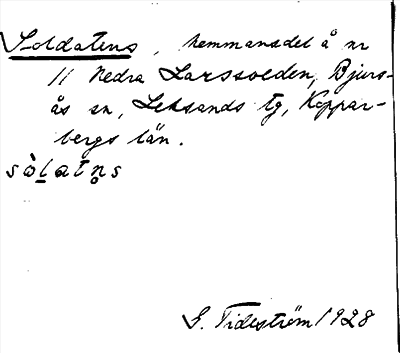 Soldatens, hemmansdel å nr
11 Nedra Larssveden, Bjurs-
ås sn, Leksands tg, Koppar-
bergs län.
sòlatn̥s
G. Tideström 1928